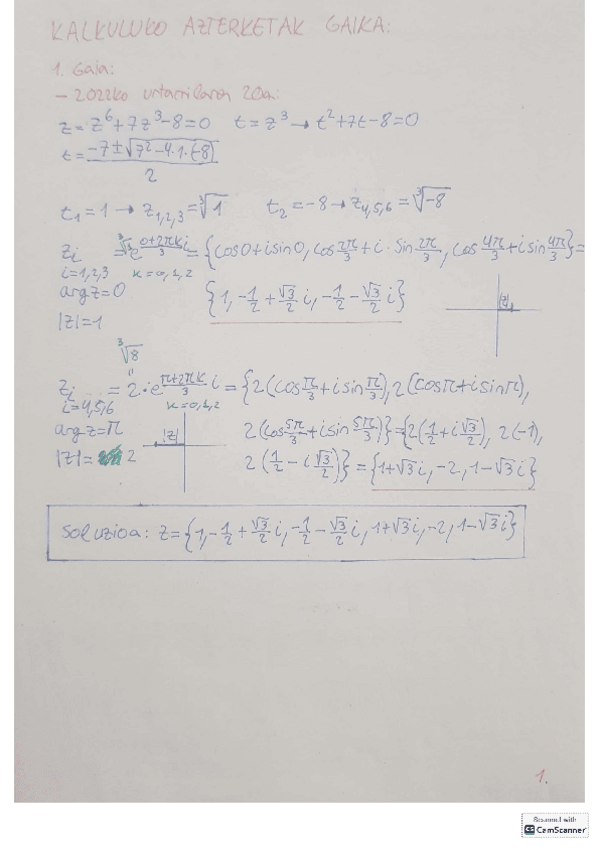 KALKULUKO AZTERKETAK GAIKA:
1. Gaia:
- 2022ko urtarrilaren 20a:
z = z⁶+7z³-8=0 t=z³ → t²+7t-8=0
t = (-7±√(7²-4·1·(-8)))/2
t₁=1 → z₁,₂,₃ = ∛1 t₂=-8 → z₄,₅,₆ = ∛-8
zᵢ = ∛1 e^((0+2πk)/3 i) = {cos0+isin0, cos 2π/3 + i·sin 2π/3, cos 4π/3 + i sin 4π/3} =
i=1,2,3 k=0,1,2
arg z=0 {1, -1/2 + √3/2 i, -1/2 - √3/2 i} |z|
|z|=1
∛8
"
zᵢ = 2·e^((π+2πk)/3 i) = {2(cos π/3 + i sin π/3), 2(cosπ+isinπ),
i=4,5,6 k=0,1,2
arg z=π |z| 2(cos 5π/3 + i sin 5π/3)} = {2(1/2 + i √3/2), 2(-1),
|z|= 2 2(1/2 - i √3/2)} = {1+√3i, -2, 1-√3i}
Soluzioa: z={1, -1/2 + √3/2 i, -1/2 - √3/2 i, 1+√3i, -2, 1-√3i}
1.
Scanned with
CS CamScanner